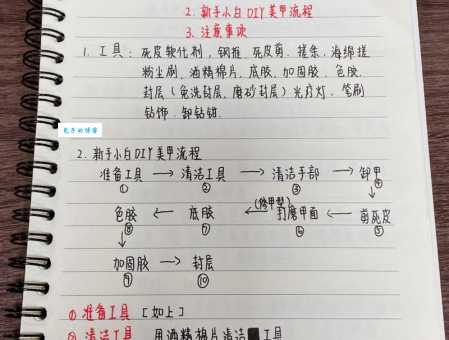 2. 新手小白DIY美甲流程
3. 注意事项
1. 工具: 死皮软化剂, 钢推、死皮剪、搓条、海绵搓
粉尘刷、酒精棉片、底胶、加固胶、色胶、
封层(免洗封层、磨砂封层)光疗灯、笔刷
钻饰、卸钻钳、
包子的博客
2. 新手小白DIY美甲流程
准备工具 → 清洁工具 → 清洁手部 → 卸甲
① ② ③ ④
(修甲型)
色胶 ← 底胶 ← 打磨甲面 ← 剪死皮
⑧ ⑦ ⑥ ⑤
加固胶 → 封层
⑨ ⑩
① 准备工具 [如上]
② 清洁工具 用酒精棉片清洁 工具